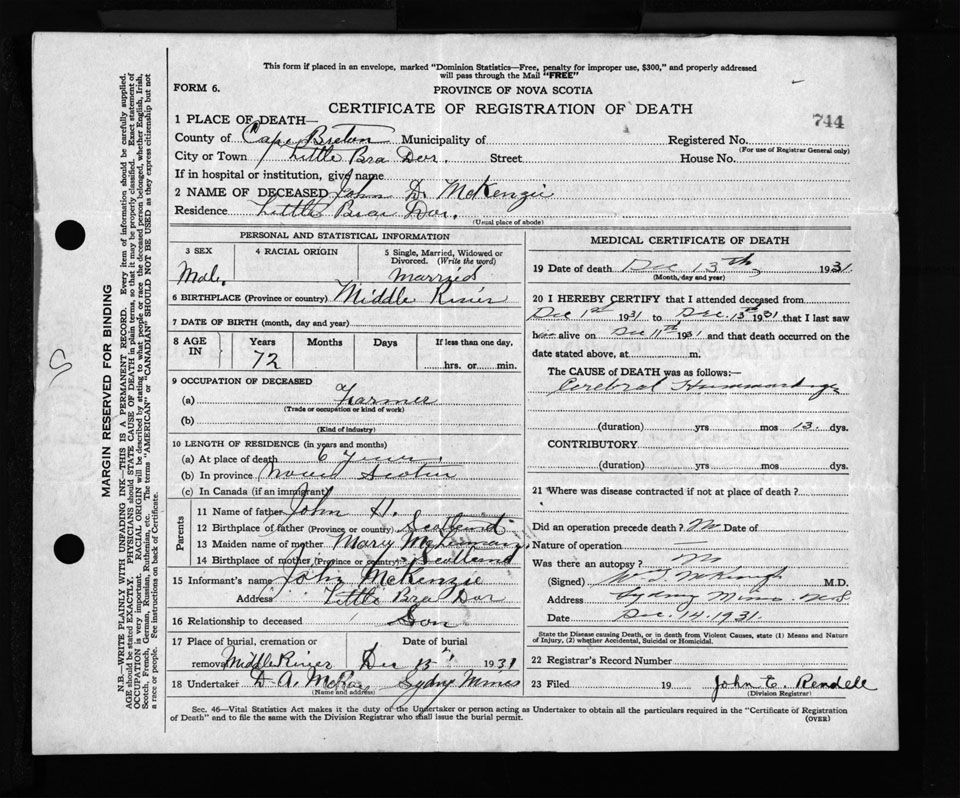 This form if placed in an envelope, marked "Dominion Statistics—Free, penalty for improper use, $300," and properly addressed
will pass through the Mail "FREE"
FORM 6.
PROVINCE OF NOVA SCOTIA
CERTIFICATE OF REGISTRATION OF DEATH
744
1 PLACE OF DEATH—
County of Cape Breton Municipality of Registered No.
(For use of Registrar General only)
City or Town Little Bra Dor. Street House No.
If in hospital or institution, give name
2 NAME OF DECEASED John D. McKenzie
Residence Little Bra Dor.
(Usual place of abode)
PERSONAL AND STATISTICAL INFORMATION
3 SEX 4 RACIAL ORIGIN 5 Single, Married, Widowed or
Divorced. (Write the word)
Male. Married
6 BIRTHPLACE (Province or country) Middle River
7 DATE OF BIRTH (month, day and year)
8 AGE IN Years Months Days If less than one day,
72 hrs. or min.
9 OCCUPATION OF DECEASED
(a) Farmer
(Trade or occupation or kind of work)
(b)
(Kind of industry)
10 LENGTH OF RESIDENCE (in years and months)
(a) At place of death 6 years.
(b) In province Nova Scotia
(c) In Canada (if an immigrant)
Parents
11 Name of father John H.
12 Birthplace of father (Province or country) Scotland
13 Maiden name of mother Mary
14 Birthplace of mother (Province or country) Scotland
15 Informant's name John McKenzie
Address Little Bra Dor
16 Relationship to deceased Son
17 Place of burial, cremation or Date of burial
removal Middle River Dec 15 1931
18 Undertaker D. A. Sydney Mines
(Name and address)
MEDICAL CERTIFICATE OF DEATH
19 Date of death Dec 13th 1931
(Month, day and year)
20 I HEREBY CERTIFY that I attended deceased from
Dec 1st 1931 to Dec. 13th 1931 that I last saw
him alive on Dec 11th 1931 and that death occurred on the
date stated above, at m.
The CAUSE of DEATH was as follows:—
Cerebral
(duration) yrs mos 13. dys.
CONTRIBUTORY
(duration) yrs. mos. dys.
21 Where was disease contracted if not at place of death?
Did an operation precede death? No Date of
Nature of operation —
Was there an autopsy? No
(Signed) M.D.
Address Sydney Mines. N.S
Date Dec. 14. 1931.
State the Disease causing Death, or in death from Violent Causes, state (1) Means and Nature
of Injury, (2) whether Accidental, Suicidal or Homicidal.
22 Registrar's Record Number
23 Filed 19 John E. Rendell
(Division Registrar)
Sec. 46—Vital Statistics Act makes it the duty of the Undertaker or person acting as Undertaker to obtain all the particulars required in the "Certificate of Registration
of Death" and to file the same with the Division Registrar who shall issue the burial permit.
(OVER)
MARGIN RESERVED FOR BINDING
N.B.—WRITE PLAINLY WITH UNFADING INK—THIS IS A PERMANENT RECORD. Every item of information should be carefully supplied.
AGE should be stated EXACTLY. PHYSICIANS should STATE CAUSE OF DEATH in plain terms, so that it may be properly classified. Exact statement of
OCCUPATION is very important. RACIAL ORIGIN will be described by stating to what people or race the deceased person belonged, whether English, Irish,
Scotch, French, German, Russian, Ruthenian, etc. The terms "AMERICAN" or "CANADIAN" SHOULD NOT BE USED as they express citizenship but not
a race or people. See instructions on back of Certificate.